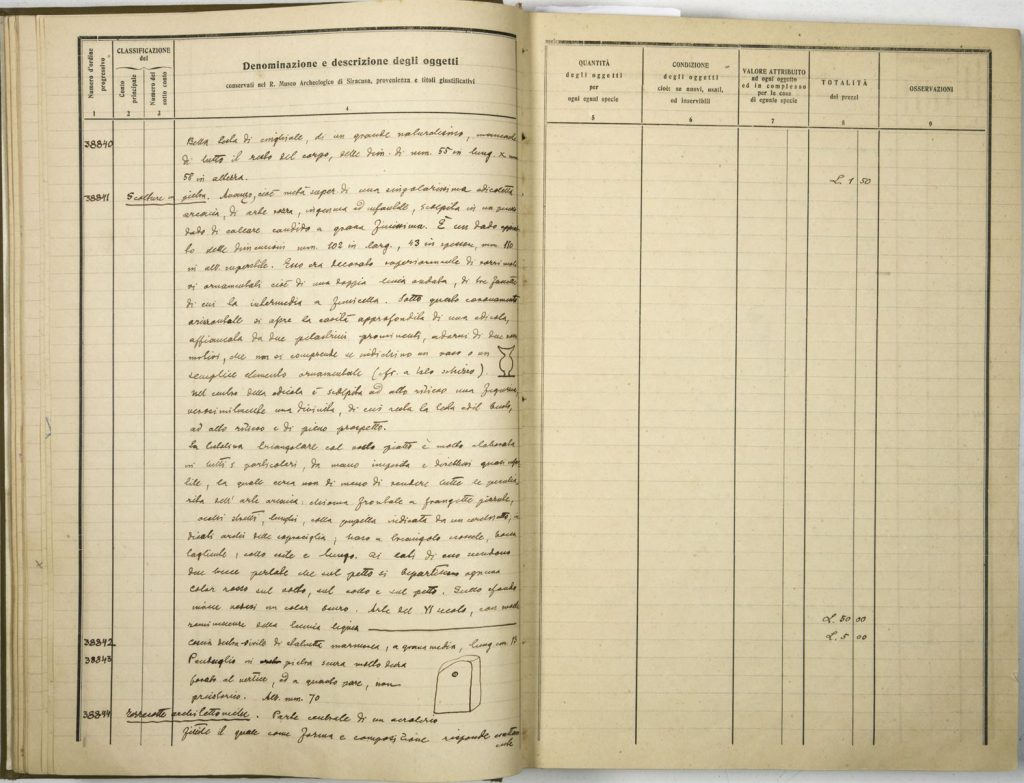 Numero d'ordine progressivo
CLASSIFICAZIONE del
Conto principale
Numero del sotto conto
Denominazione e descrizione degli oggetti
conservati nel R. Museo Archeologico di Siracusa, provenienza e titoli giustificativi
1 2 3 4
38840 Bella testa di cinghiale, di un grande naturalismo, mancante
di tutto il resto del corpo, delle dim. di mm. 55 in lung. x mm
58 in altezza.
38841 Sculture in pietra. Avanzo, cioè metà super. di una singolarissima edicoletta
arcaica, di arte rozza, ingenua ed infantile, scolpita in un
dado di calcare candido a grana finissima. È un dado
delle dimensioni mm. 102 in larg., 43 in spessore, mm. 110
in alt. superstite. Esso era decorato superiormente di
ornamentali cioè di una doppia linea ondata, di tre
di cui la intermedia a. Sotto questo coronamento
orizzontale si apre la cavità approfondita di una edicola,
affiancata da due pilastrini prominenti, adorni di due
motivi, che non si comprende se indichino un vaso o un
semplice elemento ornamentale (cfr. a lato schizzo).
Nel centro della edicola è scolpita ad alto rilievo una figurina
verosimilmente una divinità, di cui resta la testa ed il busto,
ad alto rilievo e di pieno prospetto.
La testolina triangolare col volto piatto è molto elaborata
in tutti i particolari, da mano inesperta e
la quale cerca non di meno di rendere tutte le
dell'arte arcaica: chioma frontale a frangette
occhi stretti, lunghi, colla pupilla indicata da un cerchietto,
archi delle sopracciglia; naso a triangolo, bocca
tagliente, collo esile e lungo. Ai lati di esso scendono
due trecce perlate che sul petto si
color rosso sul volto, sul collo e sul petto. Sullo sfondo
invece un color scuro. Arte del VI secolo, con molte
reminiscenze della tecnica lignea
38842 coscia destra virile di statuetta marmorea, a grana media, lung. cm. 15
38843 Pendaglio in pietra scura molto dura
forato al vertice, ed a quanto pare, non
preistorico. Alt. mm. 70
38844 Terrecotte architettoniche. Parte centrale di un acroterio
fittile il quale come forma e composizione risponde
QUANTITÀ
degli oggetti
per
ogni egual specie
5
CONDIZIONE
degli oggetti
cioè: se nuovi, usati,
od inservibili
6
VALORE ATTRIBUITO
ad ogni oggetto
ed in complesso
per la cosa
di eguale specie
7
TOTALITÀ
dei prezzi
8
OSSERVAZIONI
9
L. 1 50
L. 50 00
L. 5 00